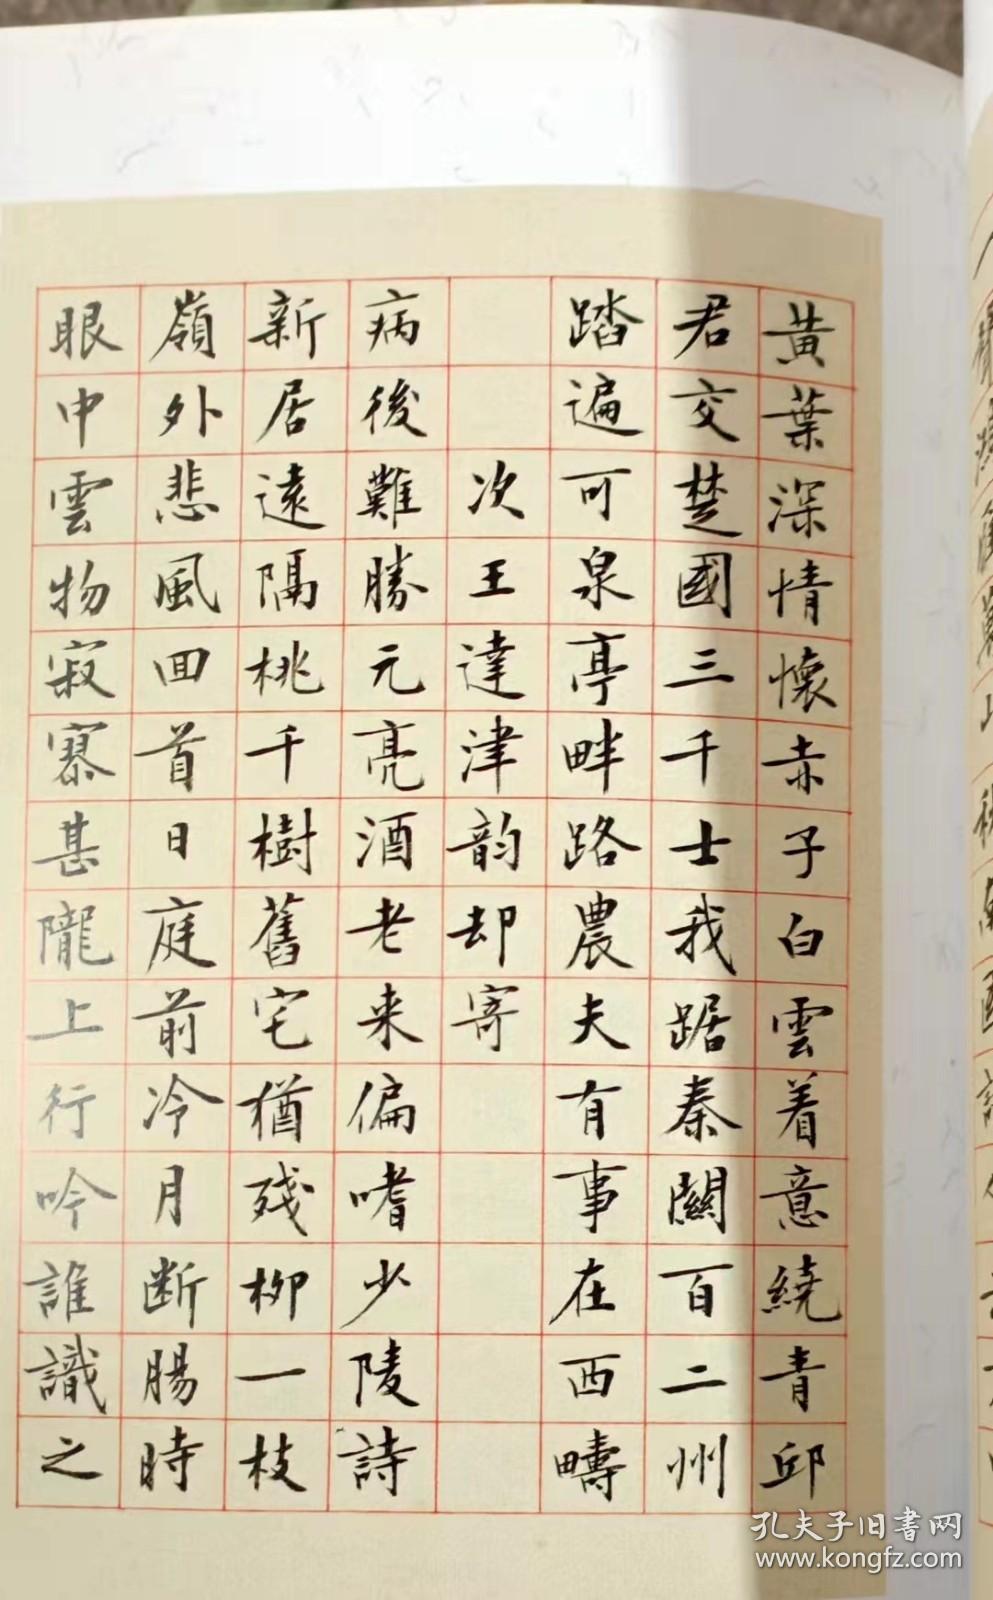 黃葉深情懷赤子白雲着意繞青邱
君交楚國三千士我踞秦關百二州
踏遍可泉亭畔路農夫有事在西疇
次王達津韵却寄
病後難勝元亮酒老来偏嗜少陵詩
新居遠隔桃千樹舊宅猶殘柳一枝
嶺外悲風回首日庭前冷月断腸時
眼中雲物寂寥甚隴上行吟誰識之
孔夫子旧書网
www.kongfz.com